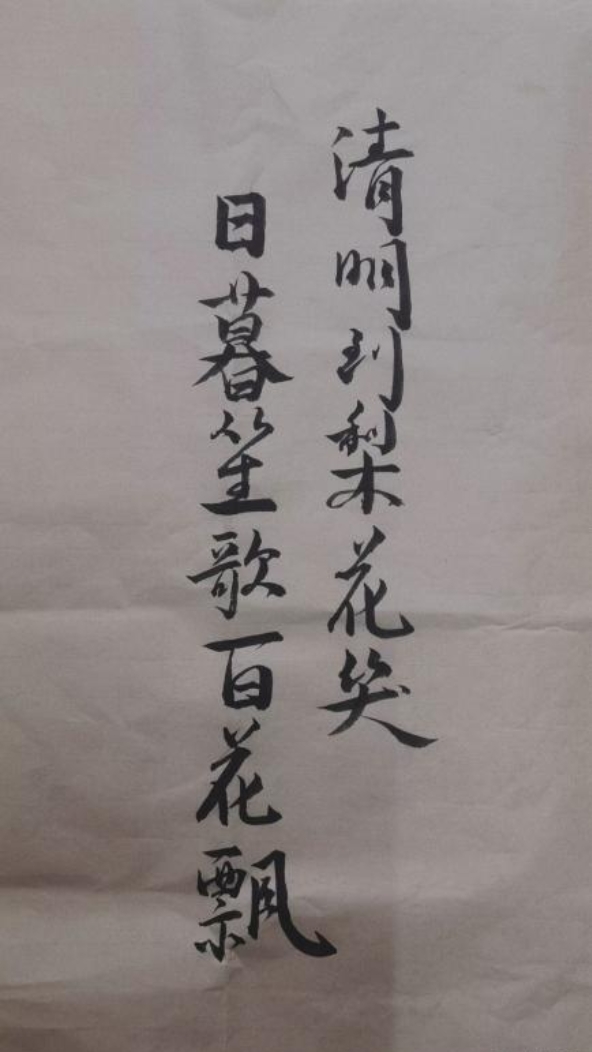 清明到梨花笑
日暮笙歌百花飘